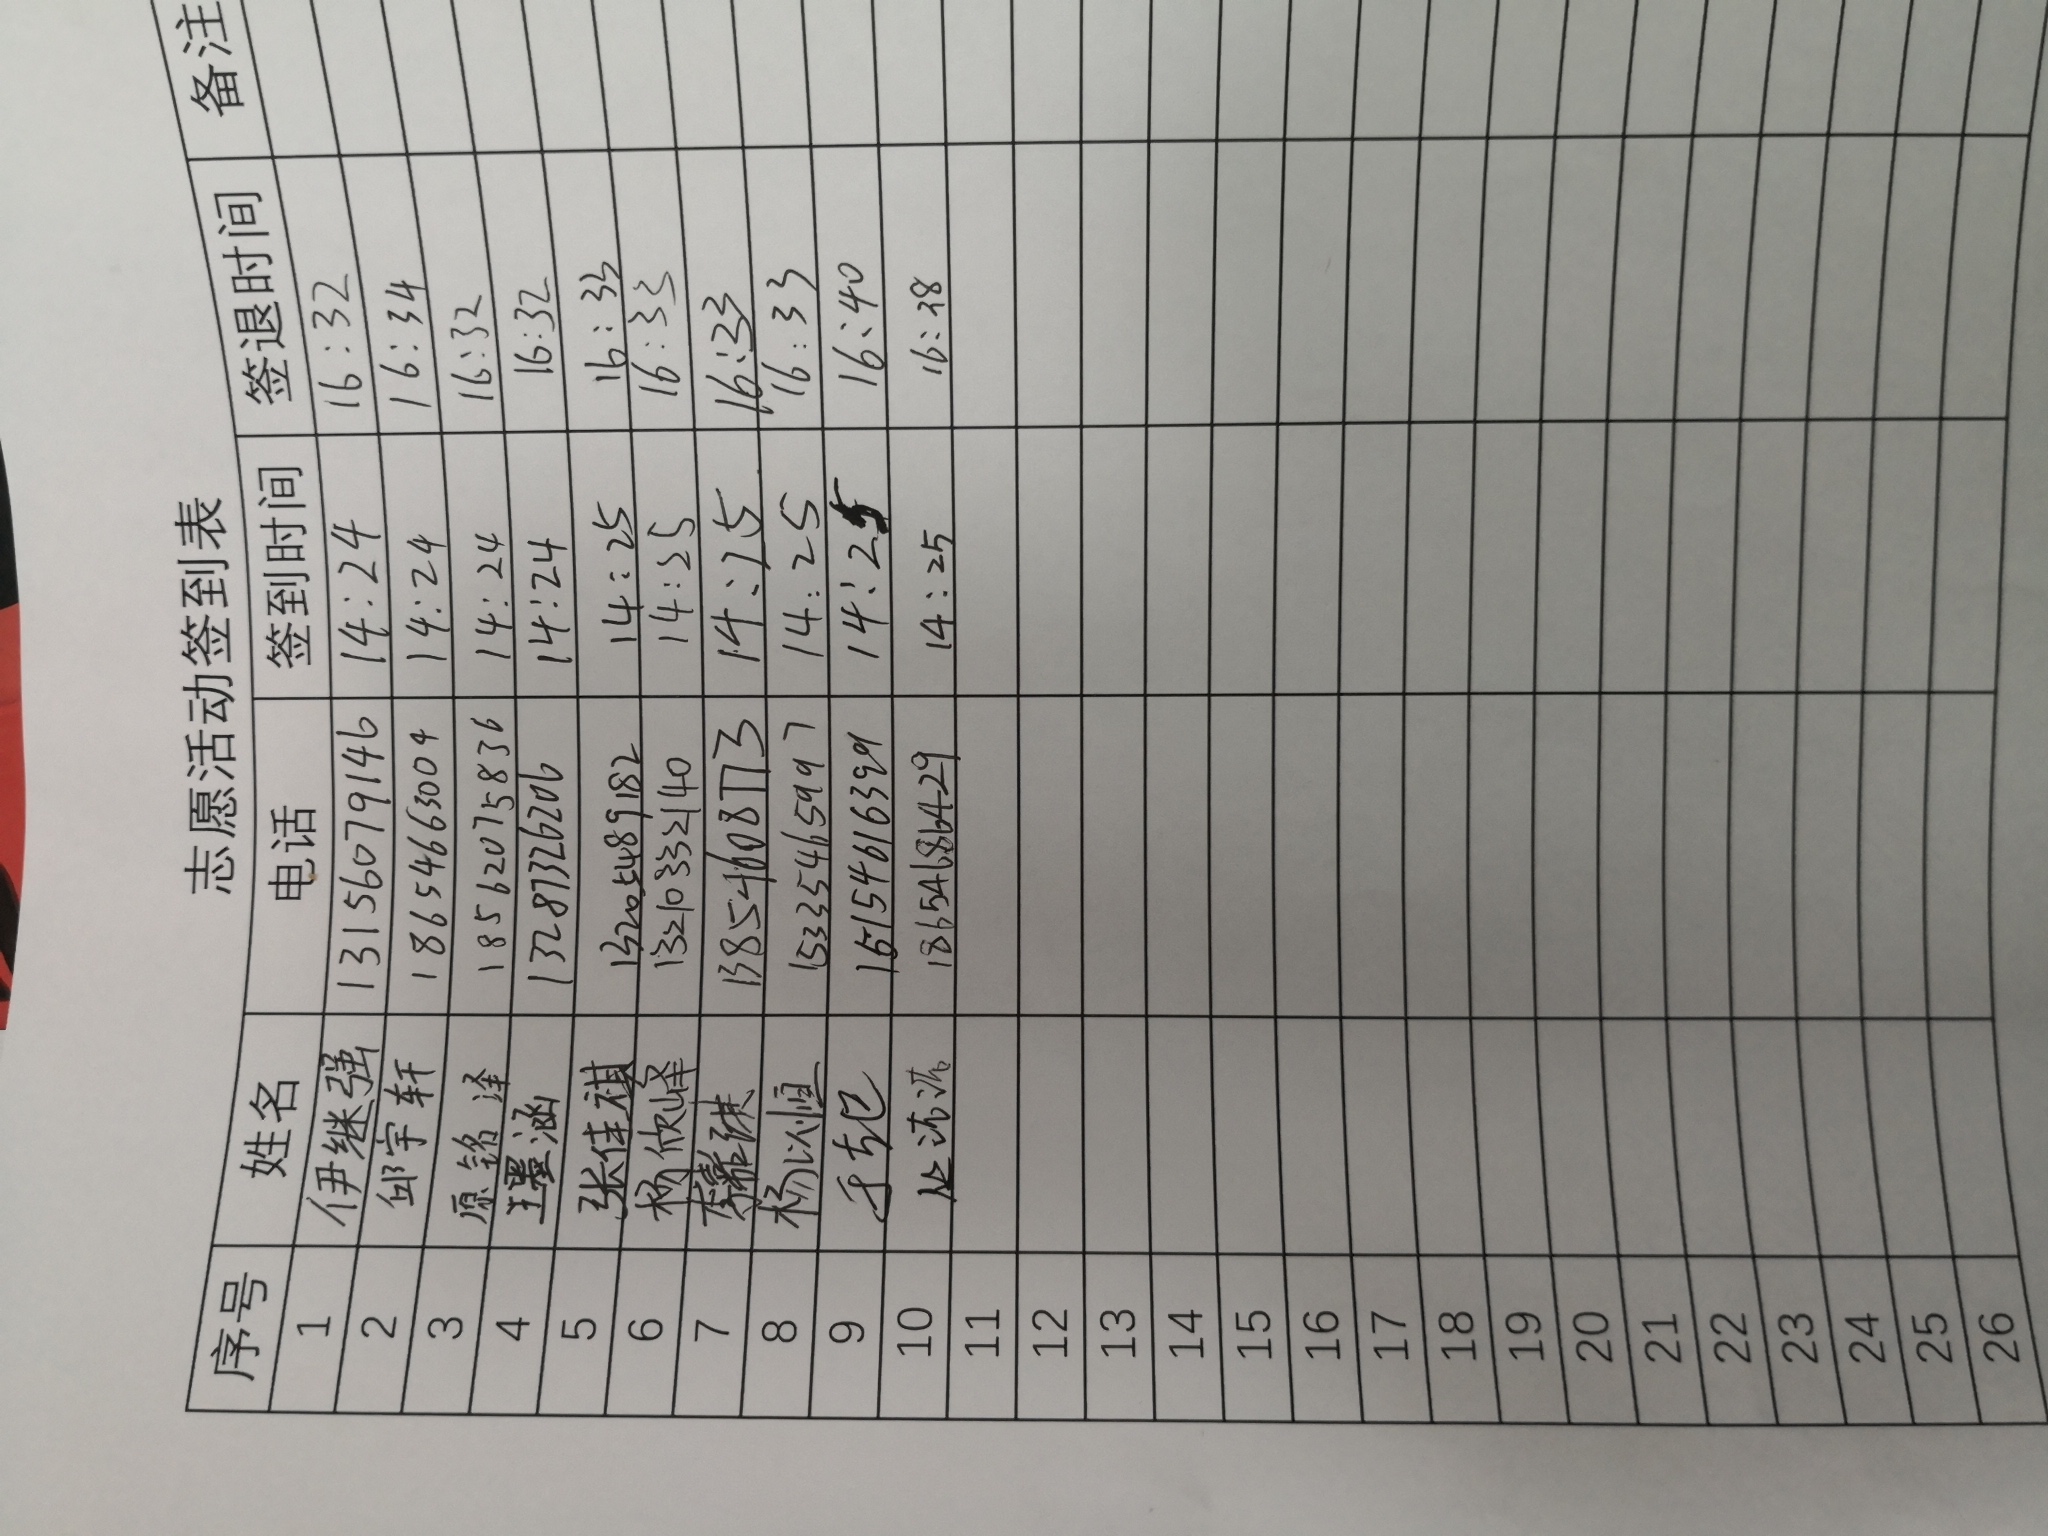 志愿活动签到表
序号 姓名 电话 签到时间 签退时间 备注
1 伊继强 13156079146 14:24 16:32
2 邱宇轩 18654663004 14:24 16:34
3 原铭泽 18562075836 14:24 16:32
4 王墨涵 13287326206 14:24 16:32
5 张佳祺 13205489182 14:25 16:33
6 杨欣峰 13210332140 14:25 16:33
7 13854608773 14:25 16:33
8 杨以恒 15335465997 14:25 16:33
9 15154616399 14:25 16:40
10 18654686429 14:25 16:38
11
12
13
14
15
16
17
18
19
20
21
22
23
24
25
26